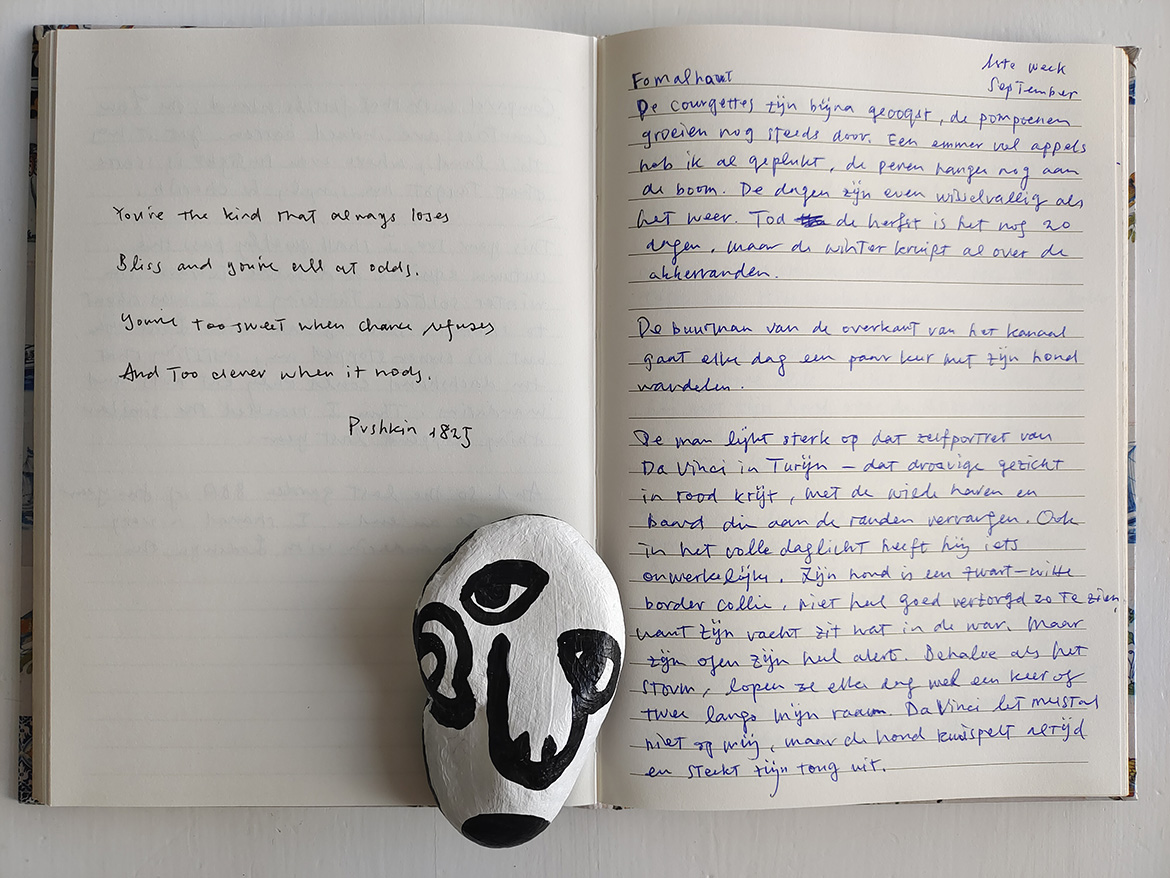 You're the kind that always loses
Bliss and you're all at odds.
You're too sweet when chance refuses
And Too clever when it nods.
Pushkin 1825
1ste week
September
Fomalhaut
De courgettes zijn bijna geoogst, de pompoenen
groeien nog steeds door. Een emmer vol appels
heb ik al geplukt, de peren hangen nog aan
de boom. De dagen zijn even wisselvallig als
het weer. Tod de herfst is het nog 20
dagen, maar de winter kruipt al over de
akkerranden.
De buurman van de overkant van het kanaal
gaat elke dag een paar keer met zijn hond
wandelen.
De man lijkt sterk op dat zelfportret van
Da Vinci in Turijn – dat droevige gezicht
in rood krijt, met de wilde haren en
baard die aan de randen vervangen. Ook
in het volle daglicht heeft hij iets
onwerkelijks. Zijn hond is een zwart-witte
border collie, niet heel goed verzorgd zo te zien,
want zijn vacht zit wat in de war. Maar
zijn ogen zijn heel alert. Behalve als het
stormt, lopen ze elke dag wel een keer of
twee langs mijn raam. Da Vinci let meestal
niet op mij, maar de hond kwispelt altijd
en steekt zijn tong uit.